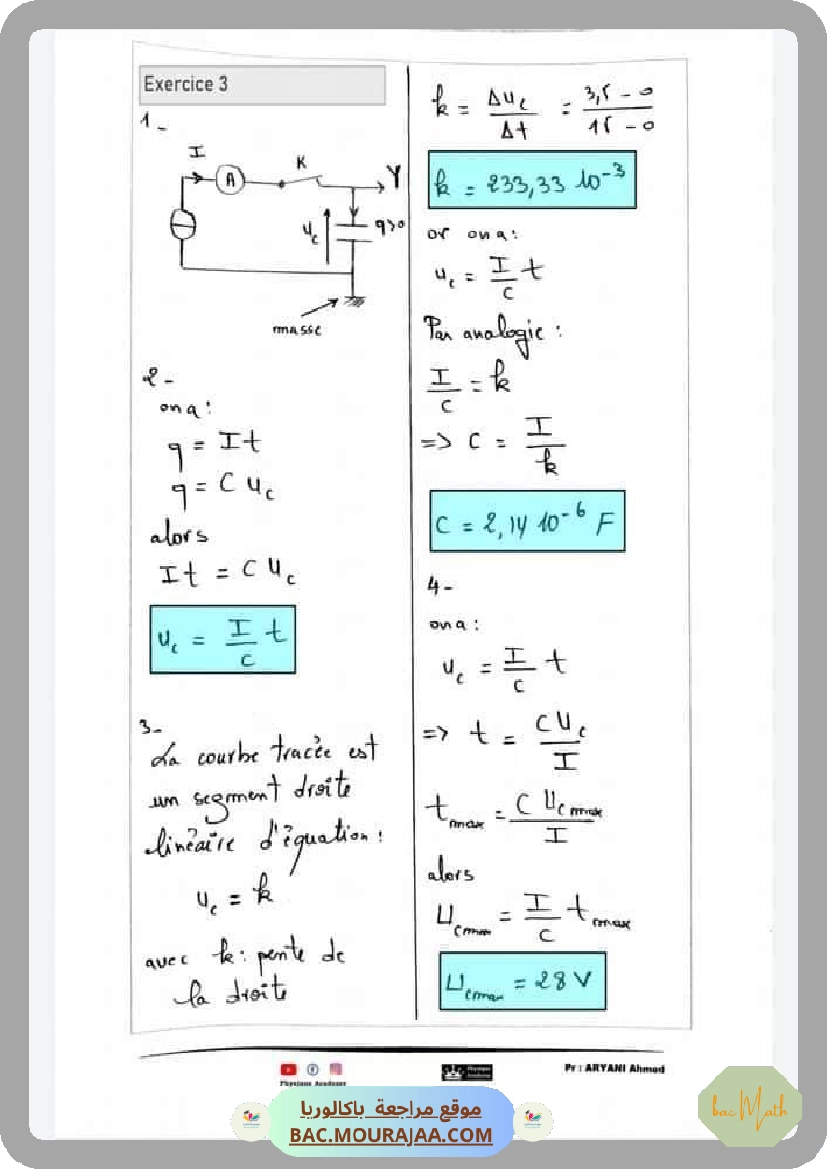 Exercice 3
1-
I
A
K
Y
u_c
q>0
masse
2-
ona:
q = It
q = C u_c
alors
It = C u_c
u_c = I/C t
3-
La courbe tracée est
un segment droite
linéaire d'équation:
u_c = k
avec k: pente de
la droite
k = Δu_c/Δt = (3,5 - 0)/(15 - 0)
k = 233,33 10⁻³
or ona:
u_c = I/C t
Par analogie:
I/C = k
=> C = I/k
C = 2,14 10⁻⁶ F
4-
ona:
u_c = I/C t
=> t = C U_c/I
t_max = C U_cmax/I
alors
U_cmax = I/C t_max
U_cmax = 28 V
Physique Academy
Pr : ARYANI Ahmed
موقع مراجعة باكالوريا
BAC.MOURAJAA.COM
bac Math